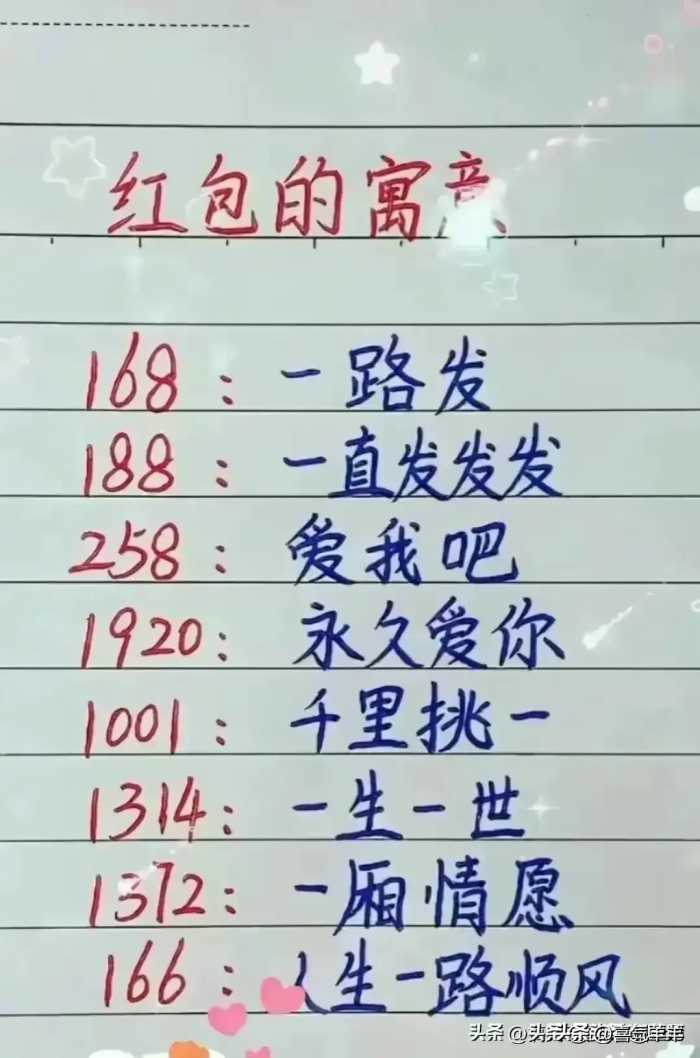 红包的寓意
168：一路发
188：一直发发发
258：爱我吧
1920：永久爱你
1001：千里挑一
1314：一生一世
1372：一厢情愿
166：人生一路顺风
头条 @喜气羊羊